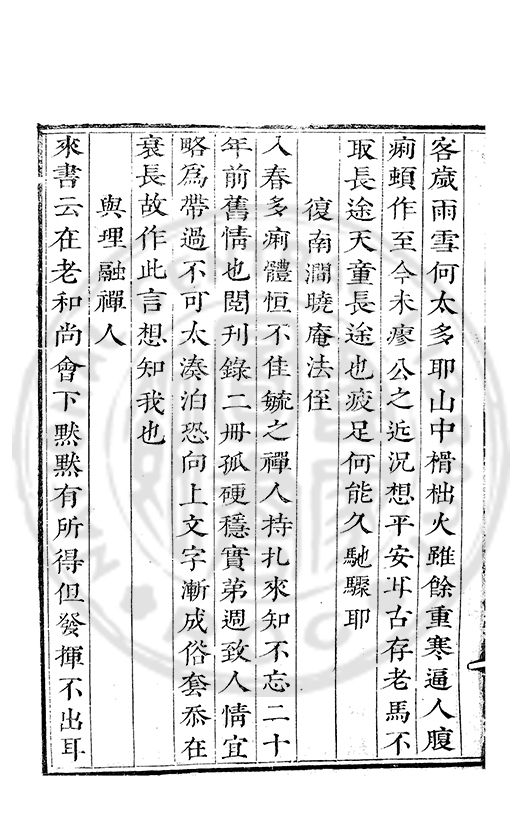 客歲雨雪何太多耶山中榾柮火雖餘重寒逼人腹
痢頻作至今未瘳公之近況想平安耳古存老馬不
取長途天童長途也疲足何能久馳驟耶
復南澗曉庵法侄
入春多痢體恒不佳毓之禪人持扎來知不忘二十
年前舊情也閱刊錄二冊孤硬穩實第週致人情宜
略爲帶過不可太湊泊恐向上文字漸成俗套忝在
衰長故作此言想知我也
與理融禪人
來書云在老和尚會下默默有所得但發揮不出耳